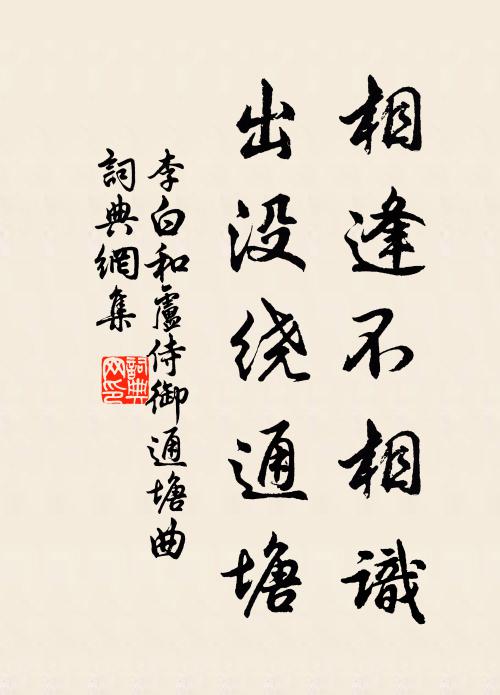 相逢不相識
出没绕通塘
李白和盧侍御通塘曲
詞典網集
詞典網印